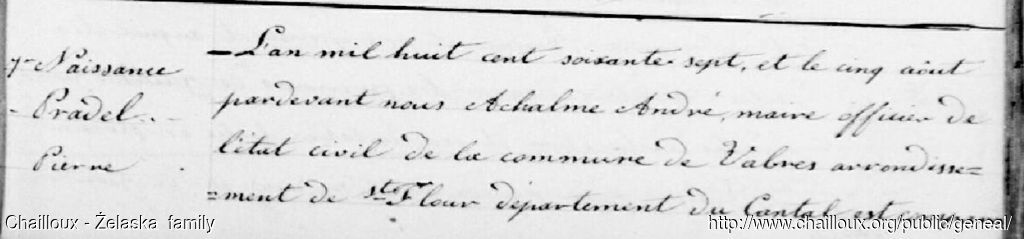 7e Naissance
Pradel
Pierre
L'an mil huit cent soixante sept, et le cinq août
pardevant nous Achalme André, maire officier de
l'état civil de la commune de Vabres arrondisse=
=ment de St Flour département du Cantal est
Chailloux - Żelaska family
http://www.chailloux.org/public/geneal/